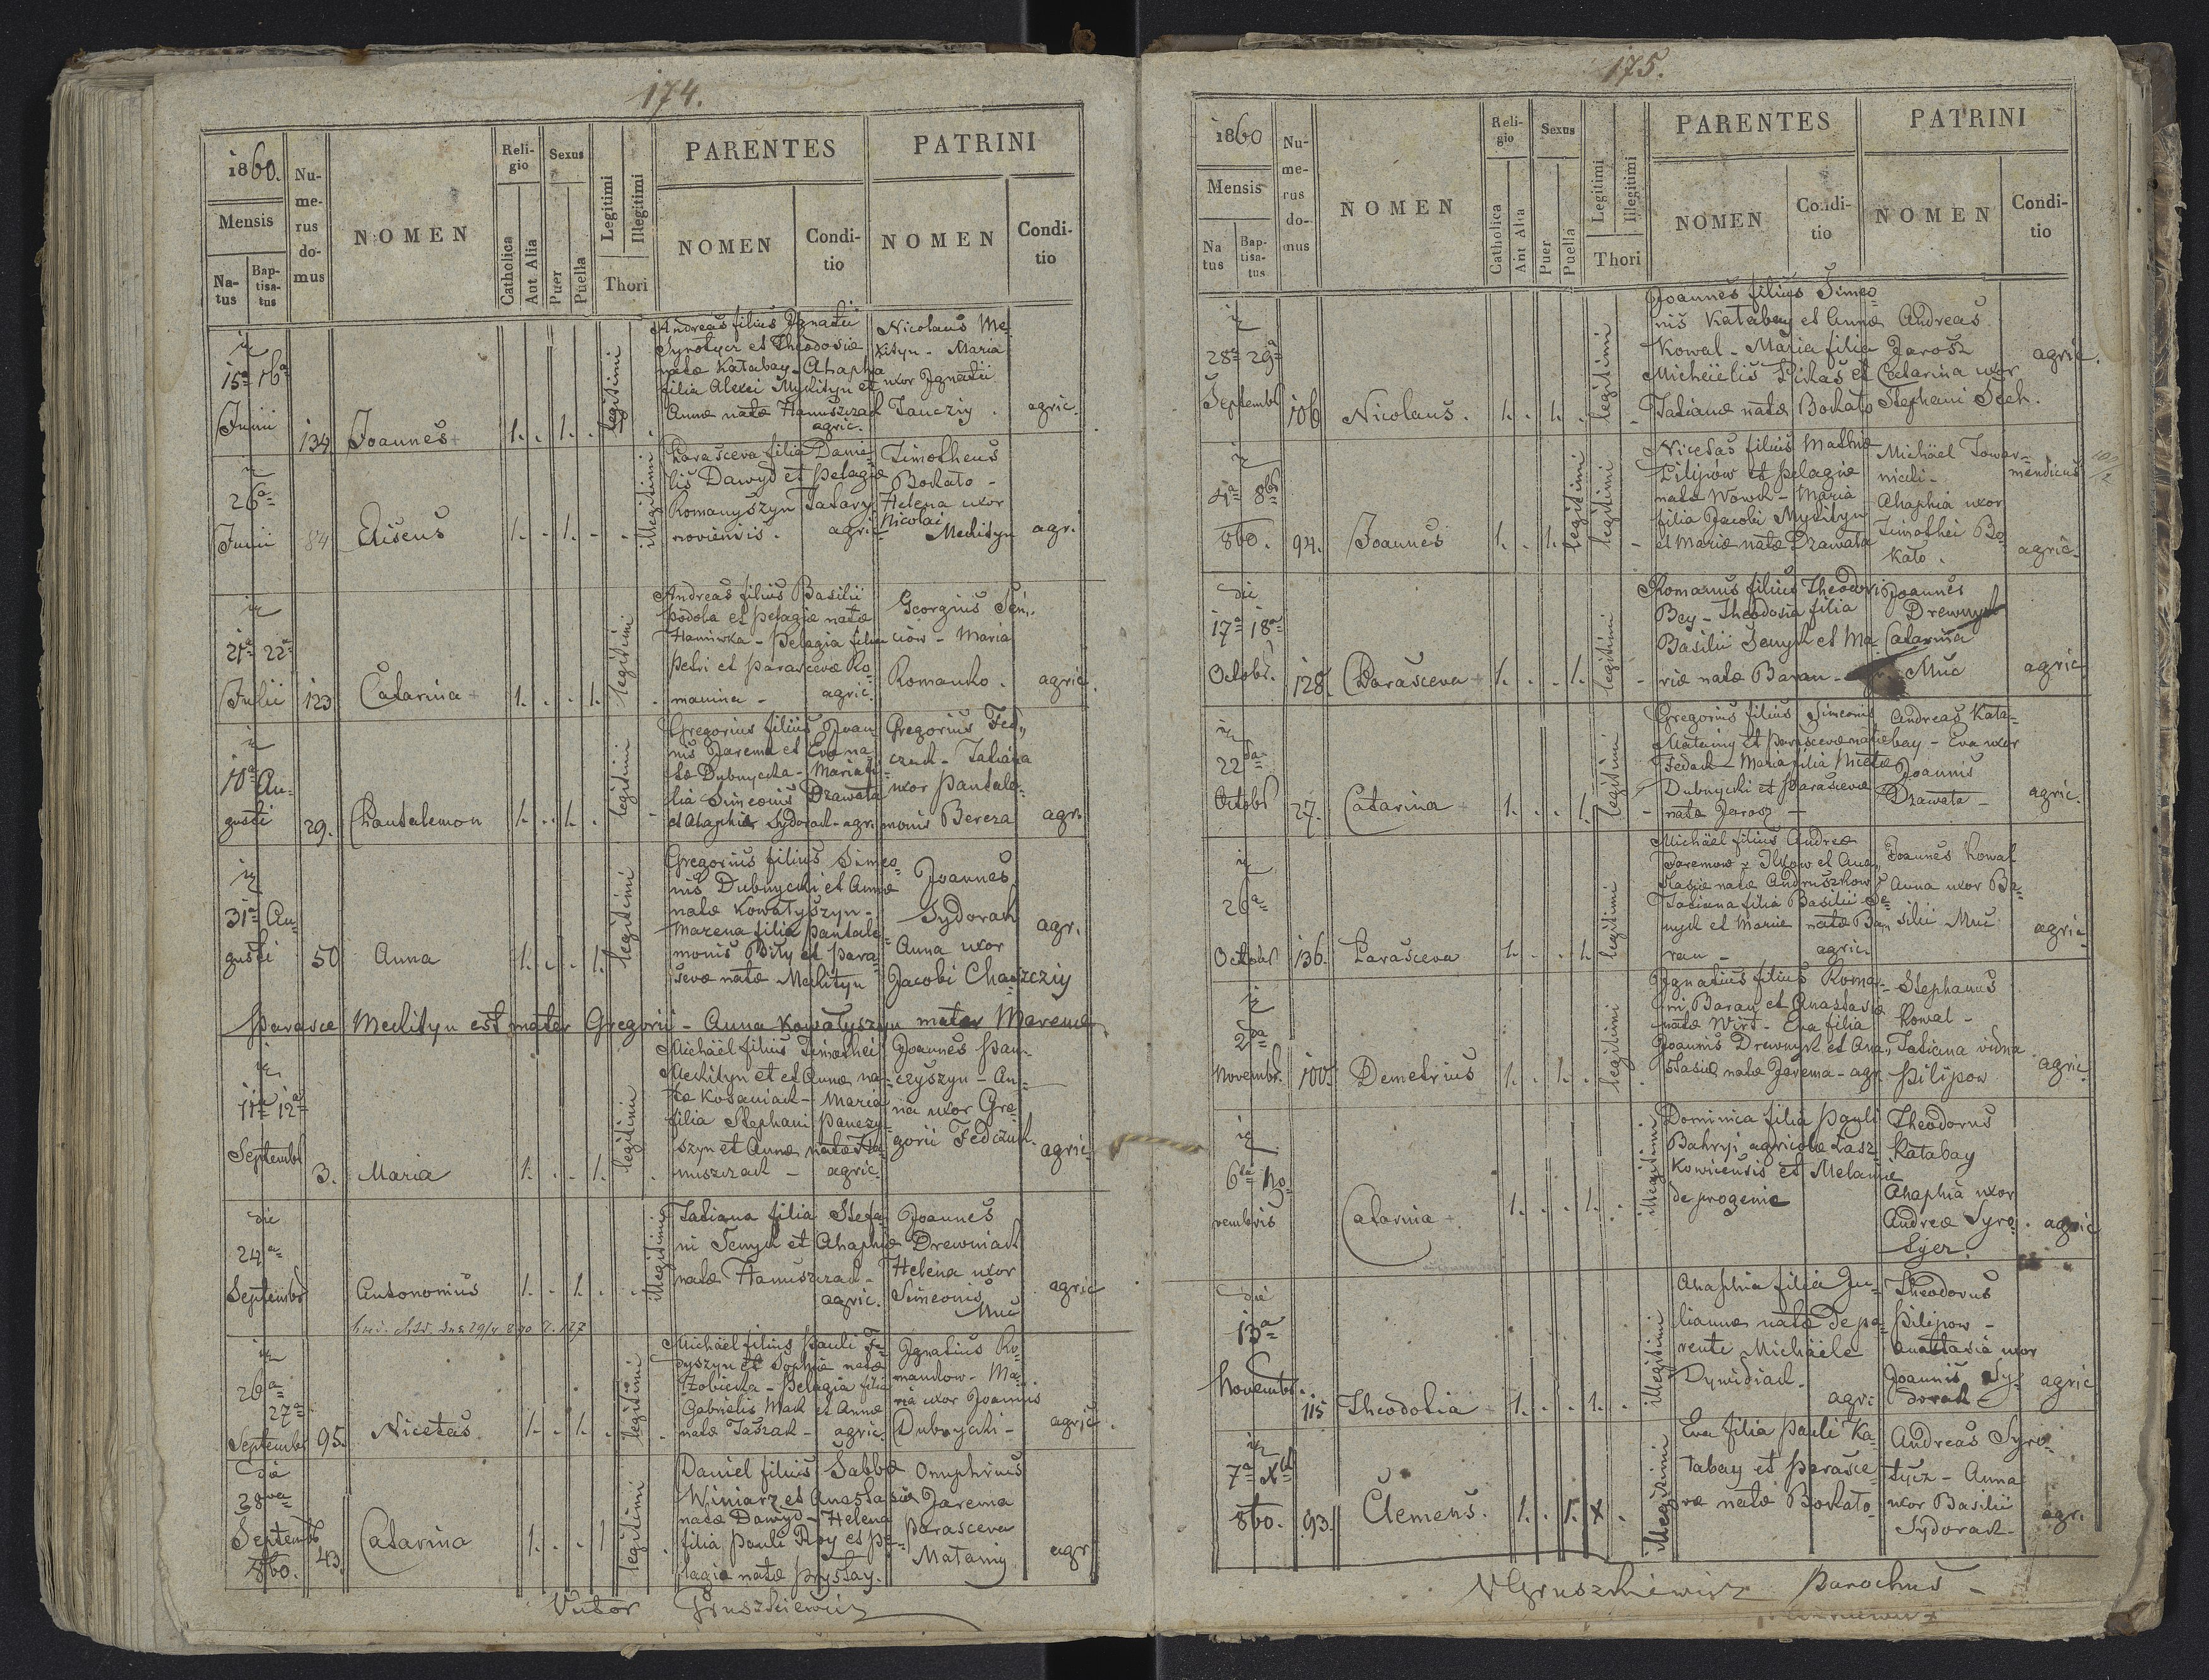 174.
1860.
Mensis
Na-
tus
Bap-
tisa-
tus
Nu-
me-
rus
do-
mus
NOMEN
Reli-
gio
Catholica
Aut Alia
Sexus
Puer
Puella
Legitimi
Illegitimi
Thori
PARENTES
NOMEN
Condi-
tio
PATRINI
NOMEN
Condi-
tio
15ª 16ª
Junii
134
Joannes
1. . 1. .
legitimi
Andreas filius Ignatii
Syrotycz et Theodosiæ
natæ Katabay - Ahaphia
filia Alexii Mykityn et
Annæ natæ Hanuszczak
agric.
Nicolaus Me-
kityn - Maria
uxor Ignatii
Tancziy.
agric.
26ª
Junii
84
Eliseus
1. - 1. - .
illegitimi
Parasceva filia Danie-
lis Dawyd et Pelagiæ
Romanyszyn Tatary-
noviensis.
agric.
Timotheus
Bokato -
Helena uxor
Nicolai
Mekityn
agr.
21ª 22ª
Julii
123
Catarina
1. . . 1.
legitimi
Andreas filius Basilii
Podola et Pelagiæ natæ
Haniwka - Pelagia filia
Petri et Parascevæ Ro-
manina -
agric.
Georgius Sen-
ciow - Maria
Romanko.
agric.
10ª Au-
gusti
29.
Pantalemon
1. . 1. .
legitimi
Gregorius filius Joan-
nis Jarema et Eva na-
tæ Dubnycka - Maria fi-
lia Simeonis Drawata
et Ahaphiæ Sydorak - agr.
Gregorius Fed-
czuk - Tatiana
uxor Pantale-
monis Bereza
agr.
31ª Au-
gusti
50
Anna
1. . . 1.
legitimi
Gregorius filius Simeo-
nis Dubnycki et Annæ
natæ Kowatyszyn -
Marena filia Pantale-
monis Bity et Para-
scevæ natæ Mekityn
Joannes
Sydorak
Anna uxor
Jacobi Chaszcziy
agr.
Parasce Mekityn est mater Gregorii - Anna Kowatyszyn mater Marenæ
11ª 12ª
Septembr
3.
Maria
1. . . 1.
legitimi
Michäel filius Timothei
Mekityn et et Annæ na-
tæ Kosaniak - Maria
filia Stephani Panczy-
szyn et Annæ natæ Ha-
nuszczak -
agric.
Joannes Pan-
czyszyn - An-
na uxor Gre-
gorii Fedczuk.
agric.
die
24ª
Septembr
Antonomius
1. . 1. .
illegitimi
Tatiana filia Stepa-
ni Senyk et Ahaphiæ
natæ Hanuszczak -
agric.
Joannes
Drewniak
Helena uxor
Simeonis
Muc
agric
26ª
27ª
Septembr
95.
Nicetas
1. . 1. .
legitimi
Michäel filius Pauli Fe-
dyszyn et Sophiæ natæ
Zobicka - Pelagia filia
Gabrielis Mak et Annæ
natæ Taszak -
agric.
Ignatius Ro-
mankow - Ma-
ria uxor Joannis
Dubnycki -
agric.
die
28va
Septembr
860.
43.
Catarina
1. . . 1
legitimi
Daniel filius Sabbæ
Winiarz et Anastasiæ
natæ Dawyd - Helena
filia Pauli Roy et Pe-
lagiæ natæ Prystay.
Onuphrius
Jarema
Parasceva
Matainy
agr.
Victor Gruszkiewicz
175.
1860
Mensis
Na
tus
Bap-
tisa-
tus
Nu-
me-
rus
do-
mus
NOMEN
Reli-
gio
Catholica
Aut Alia
Sexus
Puer
Puella
Legitimi
Illegitimi
Thori
PARENTES
NOMEN
Condi-
tio
PATRINI
NOMEN
Condi-
tio
28ª 29ª
Septembr
106
Nicolaus.
1. . 1. .
legitimi
Joannes filius Simeo-
nis Katabay et Annæ
Kowal - Maria filia
Michäelis Pikas et
Tatianæ natæ Bokato
Andreas
Jarosz
Catarina uxor
Stephani Sech.
agric.
4ª 8br
860.
94.
Joannes
1. . 1.
legitimi
legitimi
Nicetas filius Mathiæ
Pilipów et Pelagiæ
natæ Wowk - Maria
filia Jacobi Mykityn
et Mariæ natæ Drawata
Michäel Towar-
nicki -
mendicus
Ahaphia uxor
Timothei Bo-
kato.
agric.
die
17ª 18ª
Octobr.
128.
Parasceva
1. . . 1.
legitimi
Romanus filius Theodori
Bey - Theodosia filia
Basilii Senyk et Ma-
riæ natæ Baran -
Joannes
Drewnyk
Catarina
Muc
agric
22da
Octobr
27.
Catarina
1. . . 1.
legitimi
Gregorius filius Simeonis
Matainy et Parascevæ natæ
Fedak - Maria filia Nicetæ
Dubnycki et Parascevæ
natæ Jarosz -
Andreas Kata-
bay - Eva uxor
Joannis
Drawata -
agric.
26ª
Octobr
136.
Parasceva
1. . . 1.
legitimi
Michäel filius Andreæ
Jaremow v Ilkow et Ana-
stasiæ natæ Andruszkow
Tatiana filia Basilii Se-
nyk et Mariæ natæ Ba-
ran -
agric.
Joannes Kowal
Anna uxor Ba-
silii Muc
agric.
2da
Novembr.
100.
Demetrius
1. . 1. .
legitimi
Ignatius filius Roma-
ni Baran et Anastasiæ
natæ Wirt - Eva filia
Joannis Drewnyk et Ana-
stasiæ natæ Jarema - agr.
Stephanus
Kowal -
Tatiana vidua
Pilipow
agric.
6ta No-
vembris
Catarina
1. . . 1. .
illegitimi
Dominica filia Pauli
Bahryj agricolæ Lasz-
kowicensis et Melaniæ
de progenie
Theodorus
Katabay
Ahaphia uxor
Andreæ Syro-
tycz.
agric
die
13ª
Novembr.
115
Theodosia
1. . . 1. .
illegitimi
Ahaphia filia Ju-
liannæ nata de pa-
rente Michäele
Dymidiak.
agr.
Theodorus
Pilipow -
Anastasia uxor
Joannis Sy-
dorak -
agric
7ª Xbr
860.
93.
Clemens.
1. . 1. X .
illegitimi
Eva filia Pauli Ka-
tabay et Parasce-
væ natæ Bokato
Andreas Syro-
tycz - Anna
uxor Basilii
Sydorak.
agr.
VGruszkiewicz Parochus -